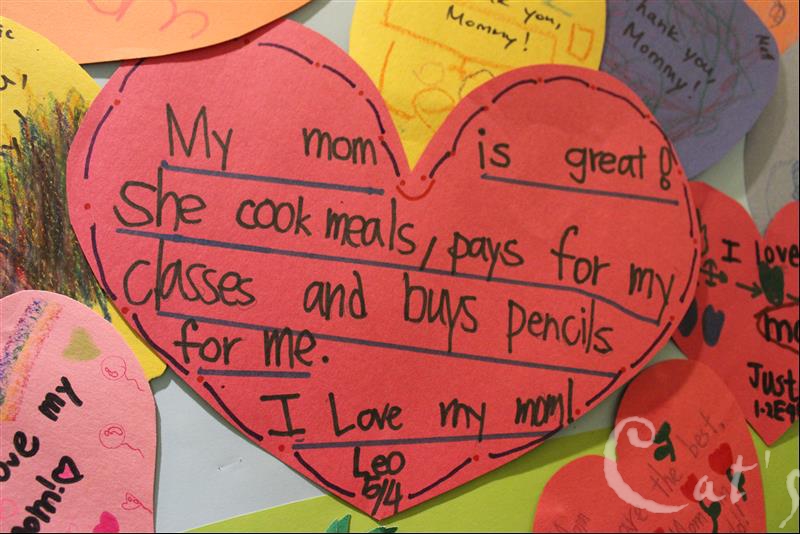 My mom is great!
She cook meals, pays for my
classes and buys pencils
for me.
I Love my mom!
Leo
5/4
Mommy!
Thank you,
Mommy!
I love
Just
my
the best,
Cat's